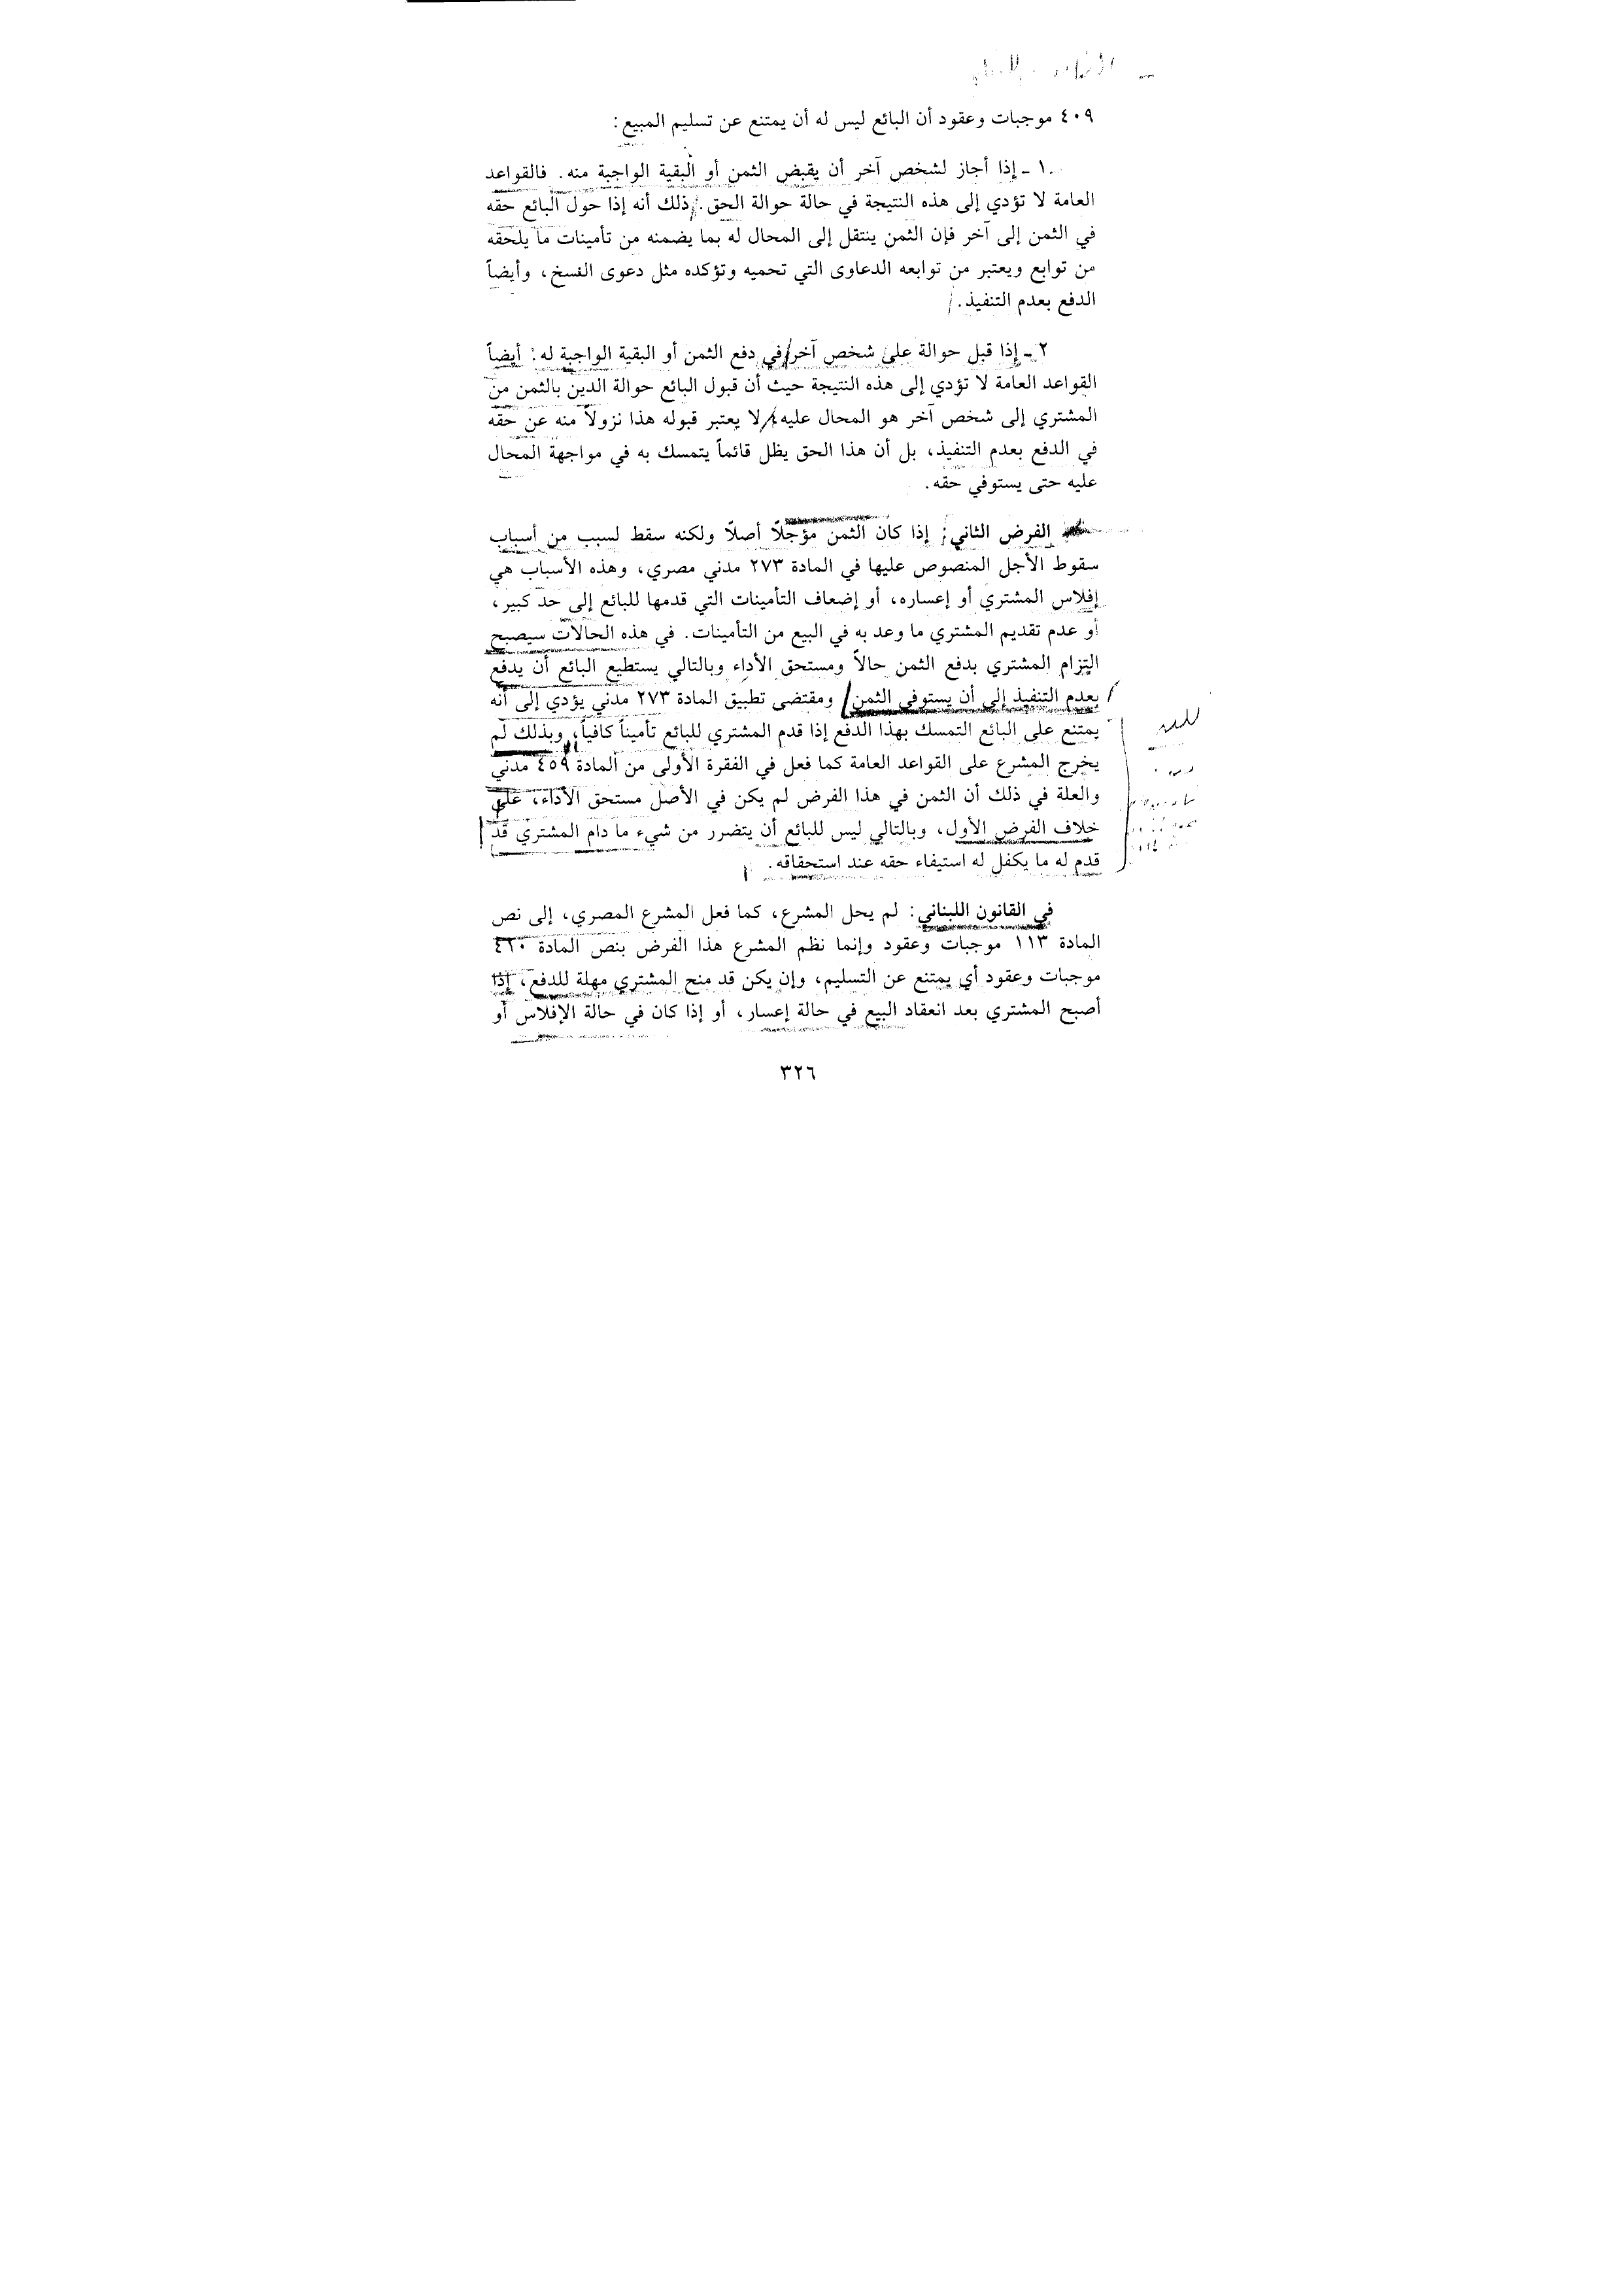 ٤٠٩ موجبات وعقود أن البائع ليس له أن يمتنع عن تسليم المبيع:
١ - إذا أجاز لشخص آخر أن يقبض الثمن أو البقية الواجبة منه. فالقواعد
العامة لا تؤدي إلى هذه النتيجة في حالة حوالة الحق. ذلك أنه إذا حول البائع حقه
في الثمن إلى آخر فإن الثمن ينتقل إلى المحال له بما يضمنه من تأمينات ما يلحقه
من توابع ويعتبر من توابعه الدعاوى التي تحميه وتؤكده مثل دعوى الفسخ، وأيضاً
الدفع بعدم التنفيذ.
٢ - إذا قبل حوالة على شخص آخر في دفع الثمن أو البقية الواجبة له: أيضاً
القواعد العامة لا تؤدي إلى هذه النتيجة حيث أن قبول البائع حوالة الدين بالثمن من
المشتري إلى شخص آخر هو المحال عليه لا يعتبر قبوله هذا نزولاً منه عن حقه
في الدفع بعدم التنفيذ، بل أن هذا الحق يظل قائماً يتمسك به في مواجهة المحال
عليه حتى يستوفي حقه.
الفرض الثاني: إذا كان الثمن مؤجلاً أصلاً ولكنه سقط لسبب من أسباب
سقوط الأجل المنصوص عليها في المادة ٢٧٣ مدني مصري، وهذه الأسباب هي
إفلاس المشتري أو إعساره، أو إضعاف التأمينات التي قدمها للبائع إلى حدّ كبير،
أو عدم تقديم المشتري ما وعد به في البيع من التأمينات. في هذه الحالات سيصبح
التزام المشتري بدفع الثمن حالاً ومستحق الأداء وبالتالي يستطيع البائع أن يدفع
بعدم التنفيذ إلى أن يستوفي الثمن ومقتضى تطبيق المادة ٢٧٣ مدني يؤدي إلى أنه
يمتنع على البائع التمسك بهذا الدفع إذا قدم المشتري للبائع تأميناً كافياً، وبذلك لم
يخرج المشرع على القواعد العامة كما فعل في الفقرة الأولى من المادة ٤٥٩ مدني
والعلة في ذلك أن الثمن في هذا الفرض لم يكن في الأصل مستحق الأداء، على
خلاف الفرض الأول، وبالتالي ليس للبائع أن يتضرر من شيء ما دام المشتري قد
قدم له ما يكفل له استيفاء حقه عند استحقاقه.
في القانون اللبناني: لم يحل المشرع، كما فعل المشرع المصري، إلى نص
المادة ١١٣ موجبات وعقود وإنما نظم المشرع هذا الفرض بنص المادة ٤١٠
موجبات وعقود أي يمتنع عن التسليم، وإن يكن قد منح المشتري مهلة للدفع، إذا
أصبح المشتري بعد انعقاد البيع في حالة إعسار، أو إذا كان في حالة الإفلاس أو
٣٢٦